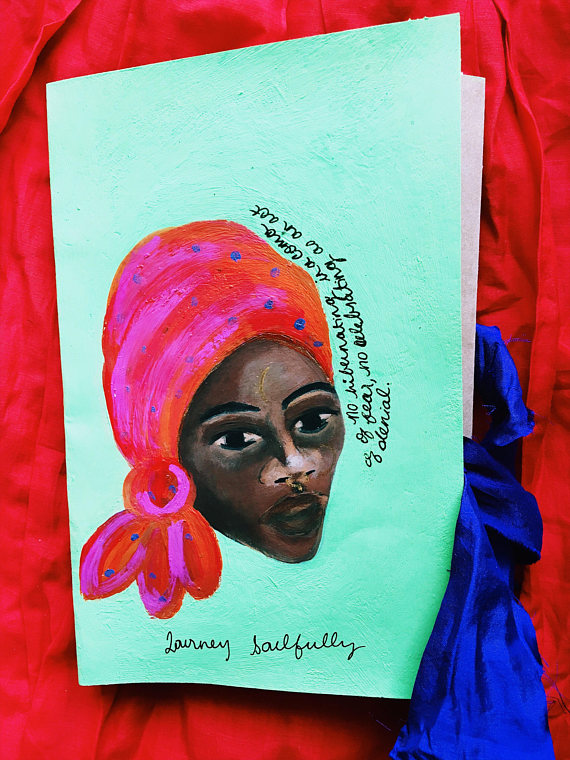 no hibernating in a coma
of fear, no celebrating as an act
of denial.
Journey Soulfully